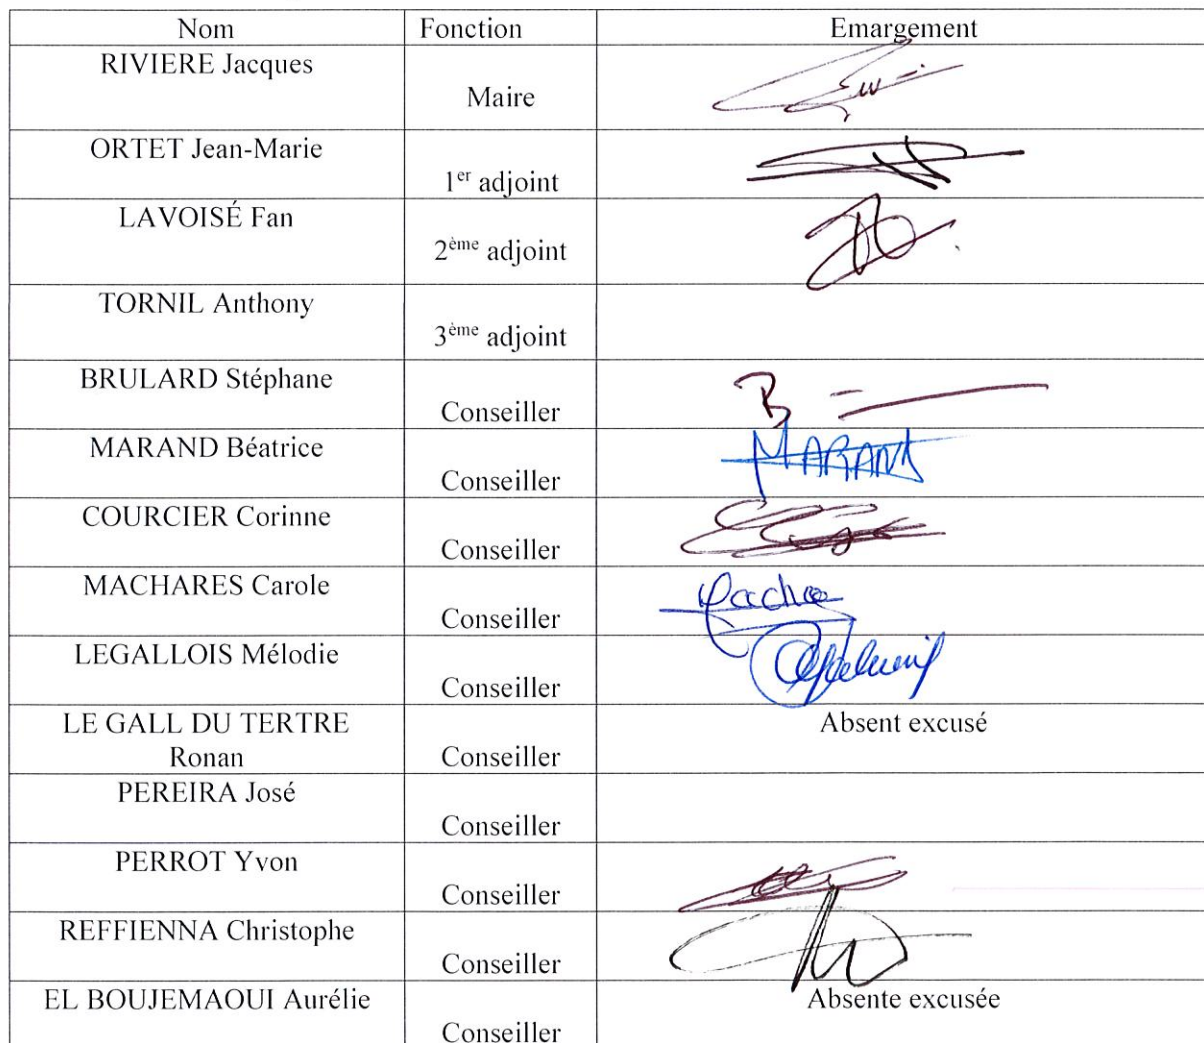 Nom Fonction Emargement
RIVIERE Jacques
Maire
ORTET Jean-Marie
1er adjoint
LAVOISÉ Fan
2ème adjoint
TORNIL Anthony
3ème adjoint
BRULARD Stéphane
Conseiller
MARAND Béatrice
Conseiller
MARAND
COURCIER Corinne
Conseiller
MACHARES Carole
Conseiller
LEGALLOIS Mélodie
Conseiller
LE GALL DU TERTRE Absent excusé
Ronan
Conseiller
PEREIRA José
Conseiller
PERROT Yvon
Conseiller
REFFIENNA Christophe
Conseiller
EL BOUJEMAOUI Aurélie Absente excusée
Conseiller